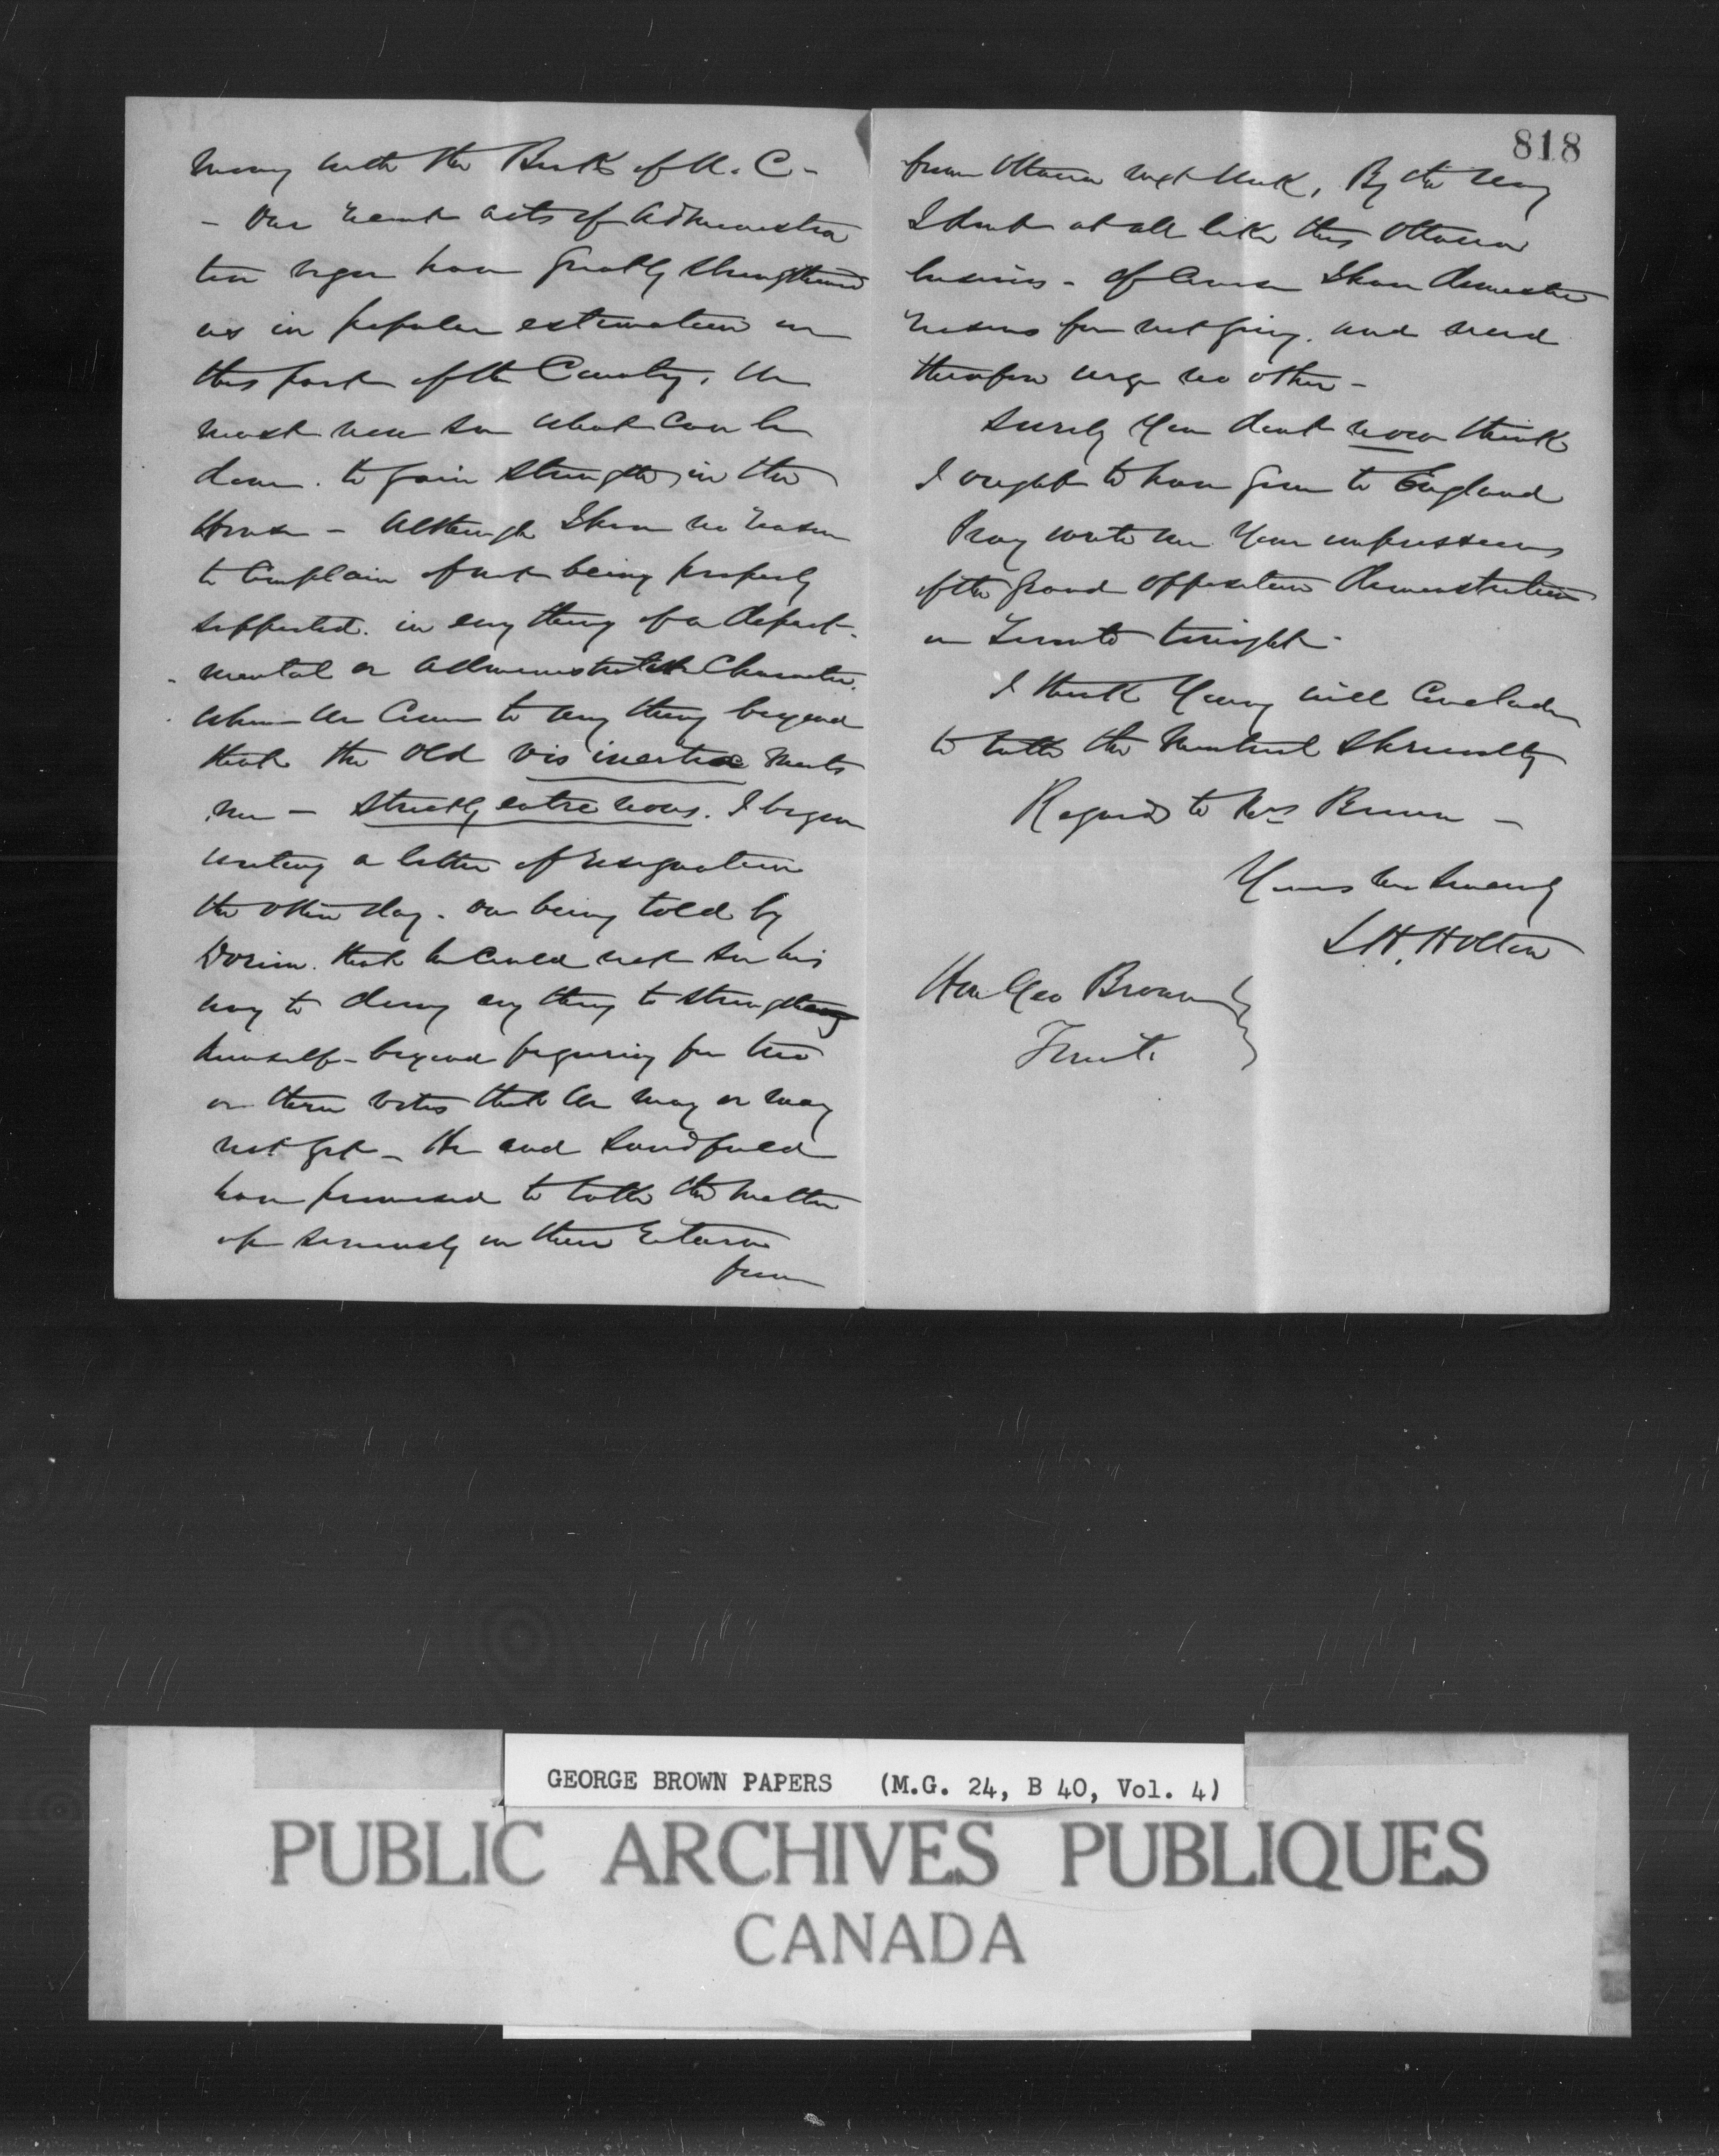 money with the Bank of U. C -
- Our recent acts of administra
tive vigor have greatly strengthened
us in popular estimation in
this part of the Country. We
must now see what can be
done. to gain strength, in the
House - Although I have no reason
to complain of not being properly
supported. in any thing of a depart-
mental or administrative Character.
When we come to any thing beyond
that the old vis inertiae meets
me - strictly entre nous. I began
writing a letter of resignation
the other day. on being told by
Dorion. that he could not see his
way to doing any thing to strengthen
himself - beyond figuring for two
or three votes that we may or may
not get - He and Sandfield
have promised to take the matter
up seriously on their return
from
818
from Ottawa next week, By the way
I dont at all like this Ottawa
business - Of course I have domestic
reasons for not going. and need
therefore urge no other -
Surely you dont now think
I ought to have gone to England
Pray write me your impressions
of the grand opposition demonstration
in Toronto tonight -
I think Young will conclude
to take the Montreal Shrievalty
Regards to Mrs Brown -
Yours sincerely
L H. Holton
Hon Geo Brown
Toronto
GEORGE BROWN PAPERS (M.G. 24, B 40, Vol. 4)
PUBLIC ARCHIVES PUBLIQUES
CANADA